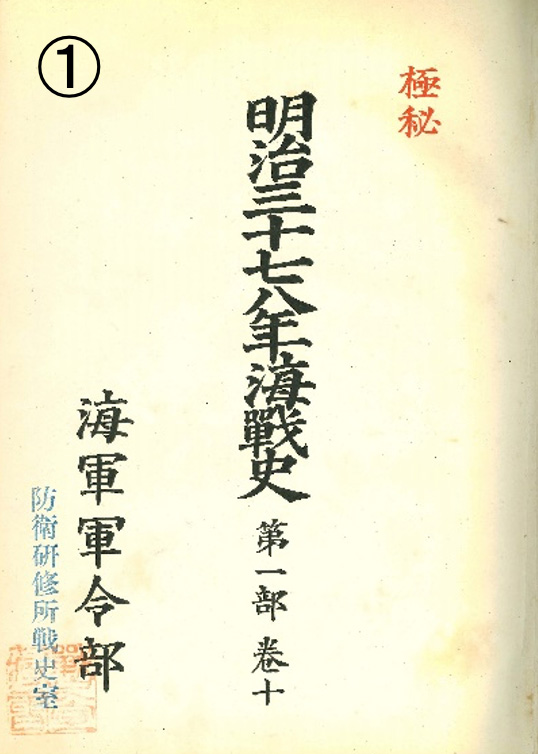 ①
極秘
明治三十七八年海戰史 第一部 卷十
海軍軍令部
防衛研修所戦史室